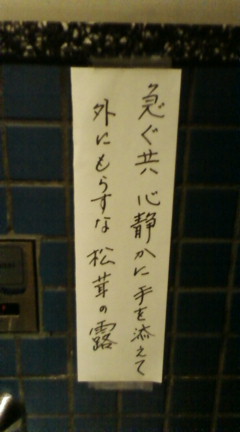 急ぐ共 心静かに 手を添えて
外にもらすな 松茸の露